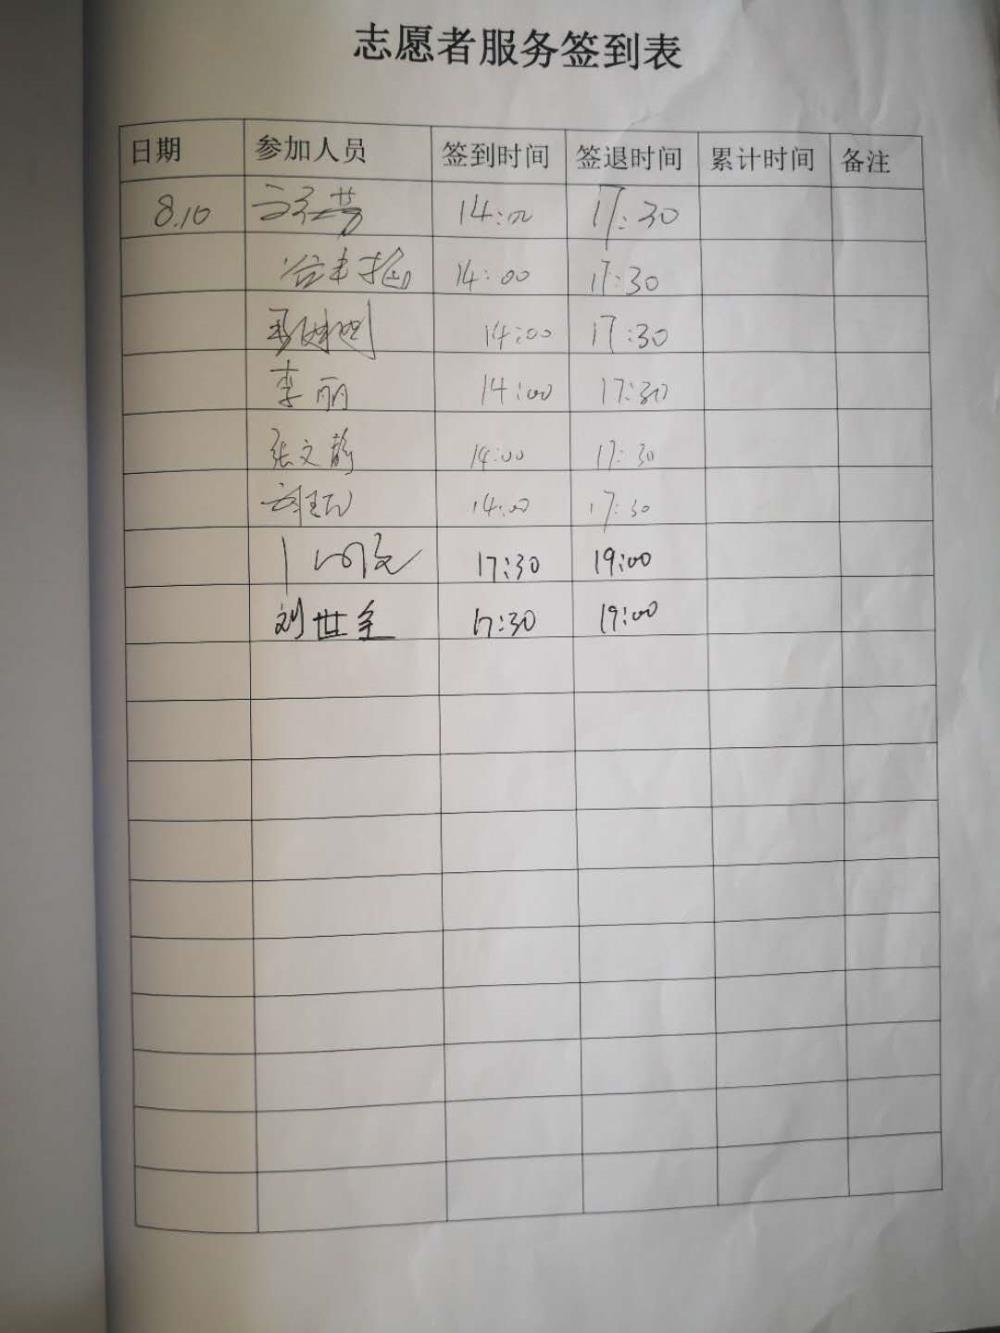 志愿者服务签到表
日期 参加人员 签到时间 签退时间 累计时间 备注
8.10 14:00 17:30
14:00 17:30
14:00 17:30
李丽 14:00 17:30
张文静 14:00 17:30
14:00 17:30
17:30 19:00
刘世全 17:30 19:00